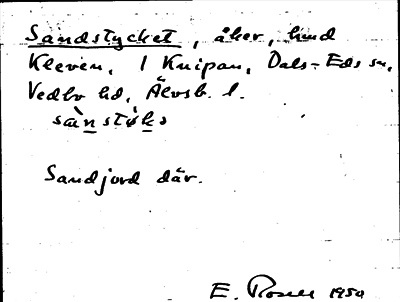 Sandstycket, åker, hmd
Kleven, 1 Knipan, Dals-Eds sn,
Vedbo hd, Älvsb. l.
sànstỳks
Sandjord där.
E. Rosell 1950